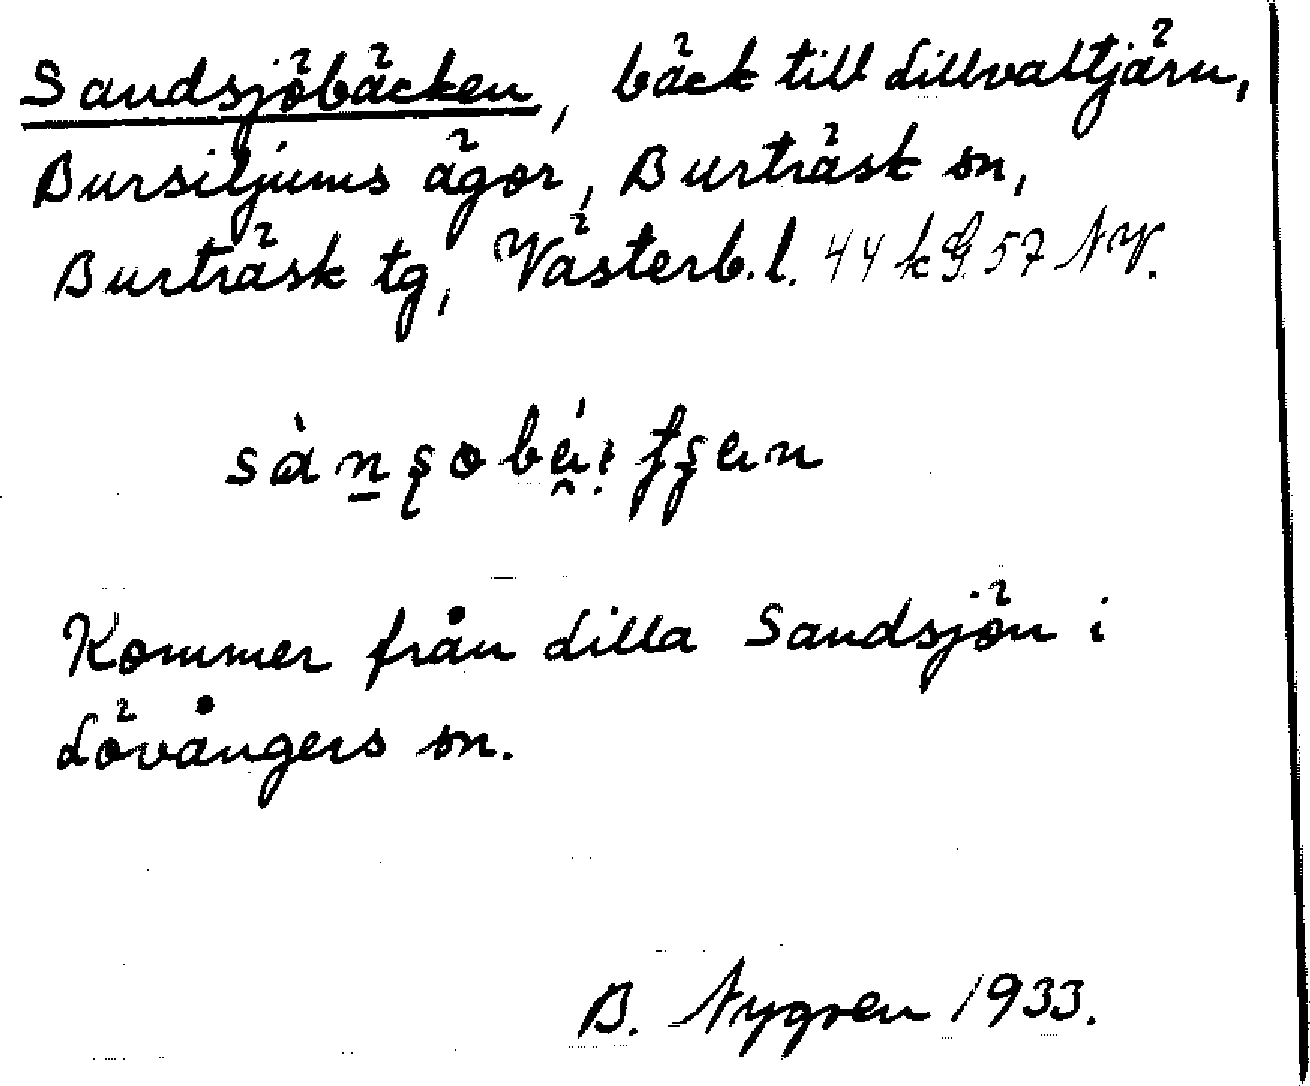 Sandsjöbäcken, bäck till Lillvaltjärn,
Bursiljums ägor, Burträsk sn,
Burträsk tg, Västerb.l. 44 k G. 57 NV.
Kommer från Lilla Sandsjön i
Lövångers sn.
B. Nygren 1933.